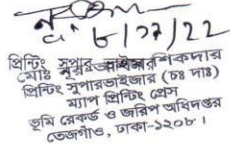 ৮/১২/২২
মোঃ শিকদার
প্রিন্টিং সুপারভাইজার (চঃ দাঃ)
ম্যাপ প্রিন্টিং প্রেস
ভূমি রেকর্ড ও জরিপ অধিদপ্তর
তেজগাঁও, ঢাকা-১২০৮।